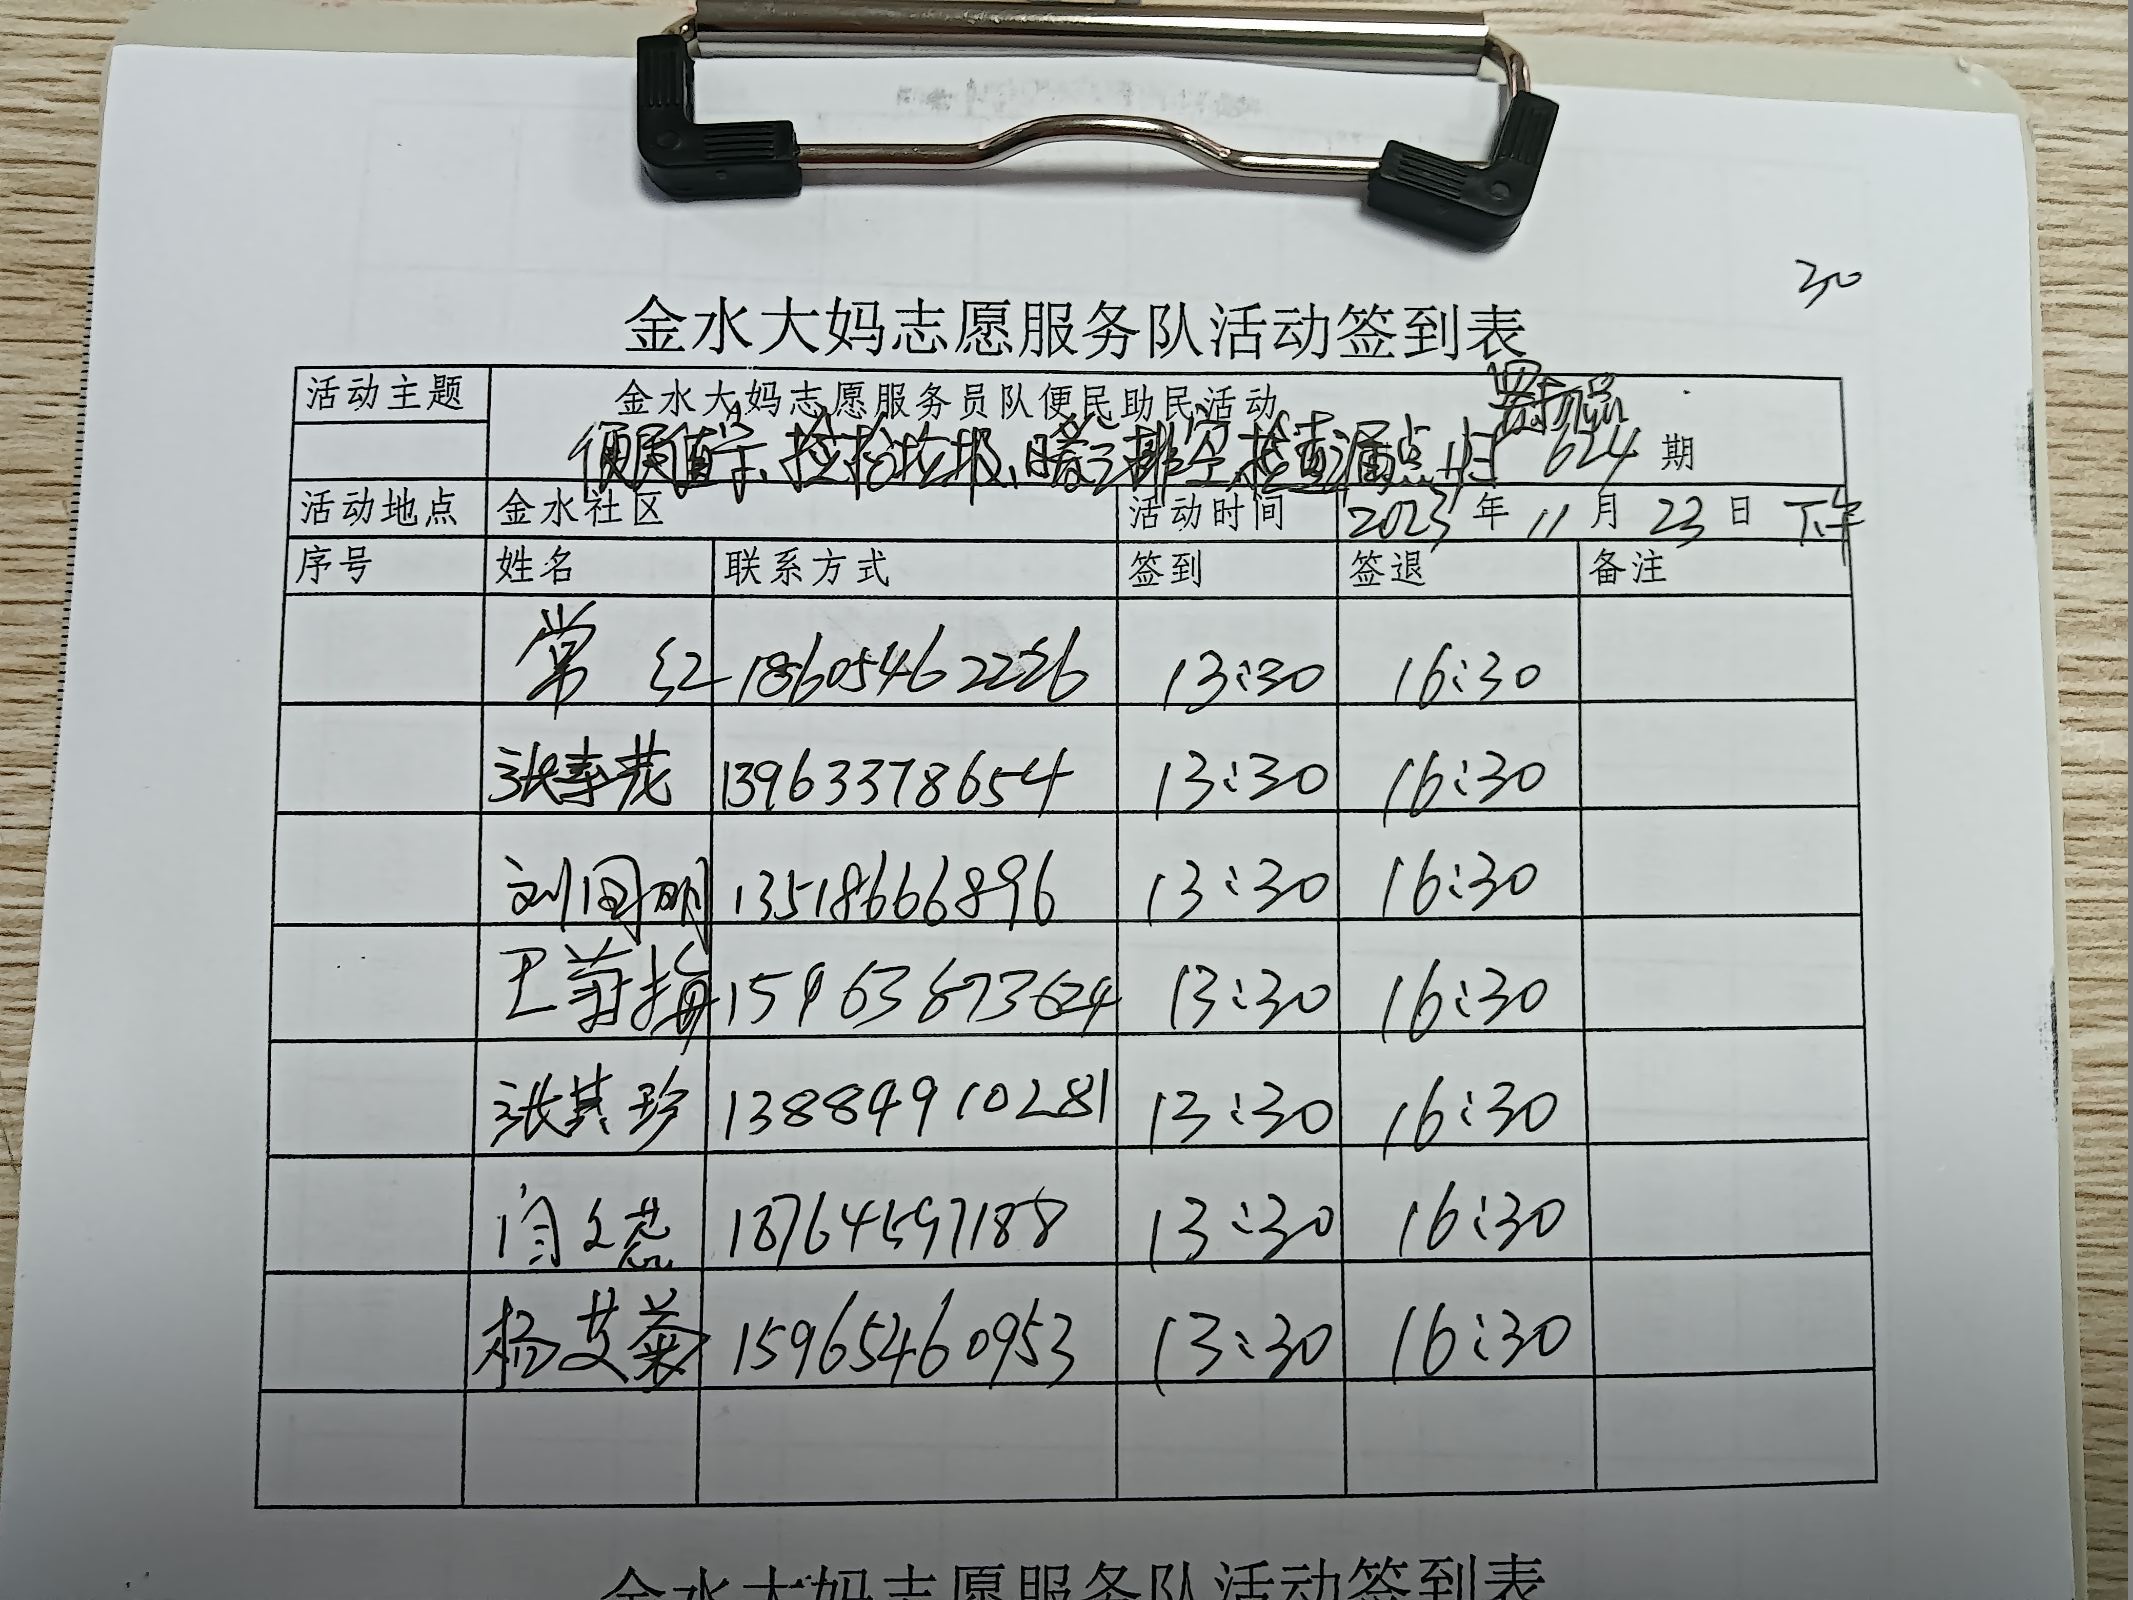 30
金水大妈志愿服务队活动签到表
活动主题 金水大妈志愿服务员队便民助民活动
便民值守、捡拾垃圾、暖气排空、检查漏点 624 期
活动地点 金水社区 活动时间 2023 年 11 月 23 日 下午
序号 姓名 联系方式 签到 签退 备注
常红 18605462226 13:30 16:30
张春茂 13963378654 13:30 16:30
刘国明 13518666896 13:30 16:30
王菊梅 15963873624 13:30 16:30
张其珍 13884910281 13:30 16:30
闫文蕊 18764597188 13:30 16:30
杨艾菊 15965460953 13:30 16:30
金水大妈志愿服务队活动签到表